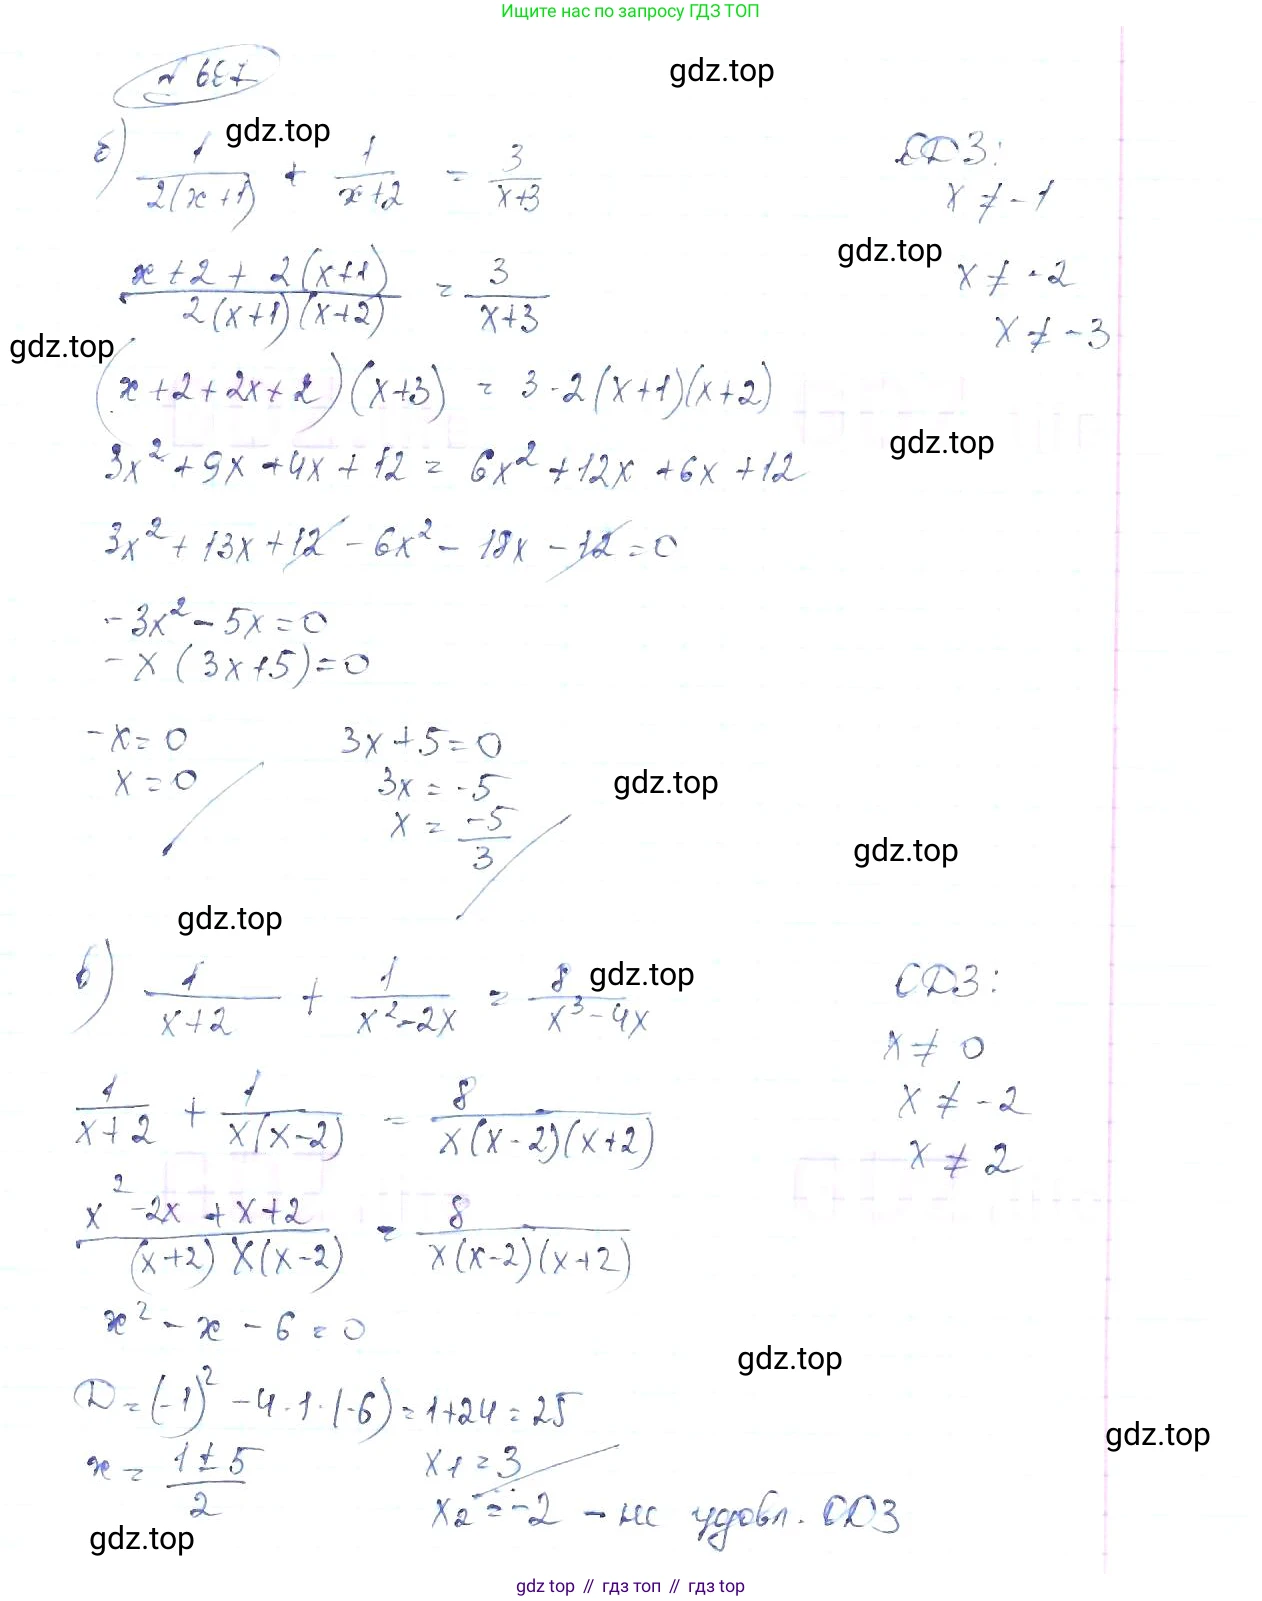 Ищите нас по запросу ГДЗ ТОП
№ 687
gdz.top
gdz.top
б) 1/(2(x+1)) + 1/(x+2) = 3/(x+3)
ОДЗ:
x ≠ -1
x ≠ -2
x ≠ -3
gdz.top
(x+2+2(x+1))/(2(x+1)(x+2)) = 3/(x+3)
gdz.top
(x+2+2x+2)(x+3) = 3·2(x+1)(x+2)
gdz.top
3x² + 9x + 4x + 12 = 6x² + 12x + 6x + 12
3x² + 13x + 12 - 6x² - 18x - 12 = 0
-3x² - 5x = 0
-x(3x+5) = 0
-x = 0 3x + 5 = 0
x = 0 3x = -5
gdz.top
x = -5/3
gdz.top
gdz.top
в) 1/(x+2) + 1/(x²-2x) = 8/(x³-4x)
gdz.top
ОДЗ:
x ≠ 0
x ≠ -2
x ≠ 2
1/(x+2) + 1/(x(x-2)) = 8/(x(x-2)(x+2))
(x²-2x+x+2)/((x+2)x(x-2)) = 8/(x(x-2)(x+2))
x² - x - 6 = 0
gdz.top
D = (-1)² - 4·1·(-6) = 1+24 = 25
gdz.top
x = (1±5)/2 x₁ = 3
x₂ = -2 - не удовл. ОДЗ
gdz.top
gdz top // гдз топ // gdz top